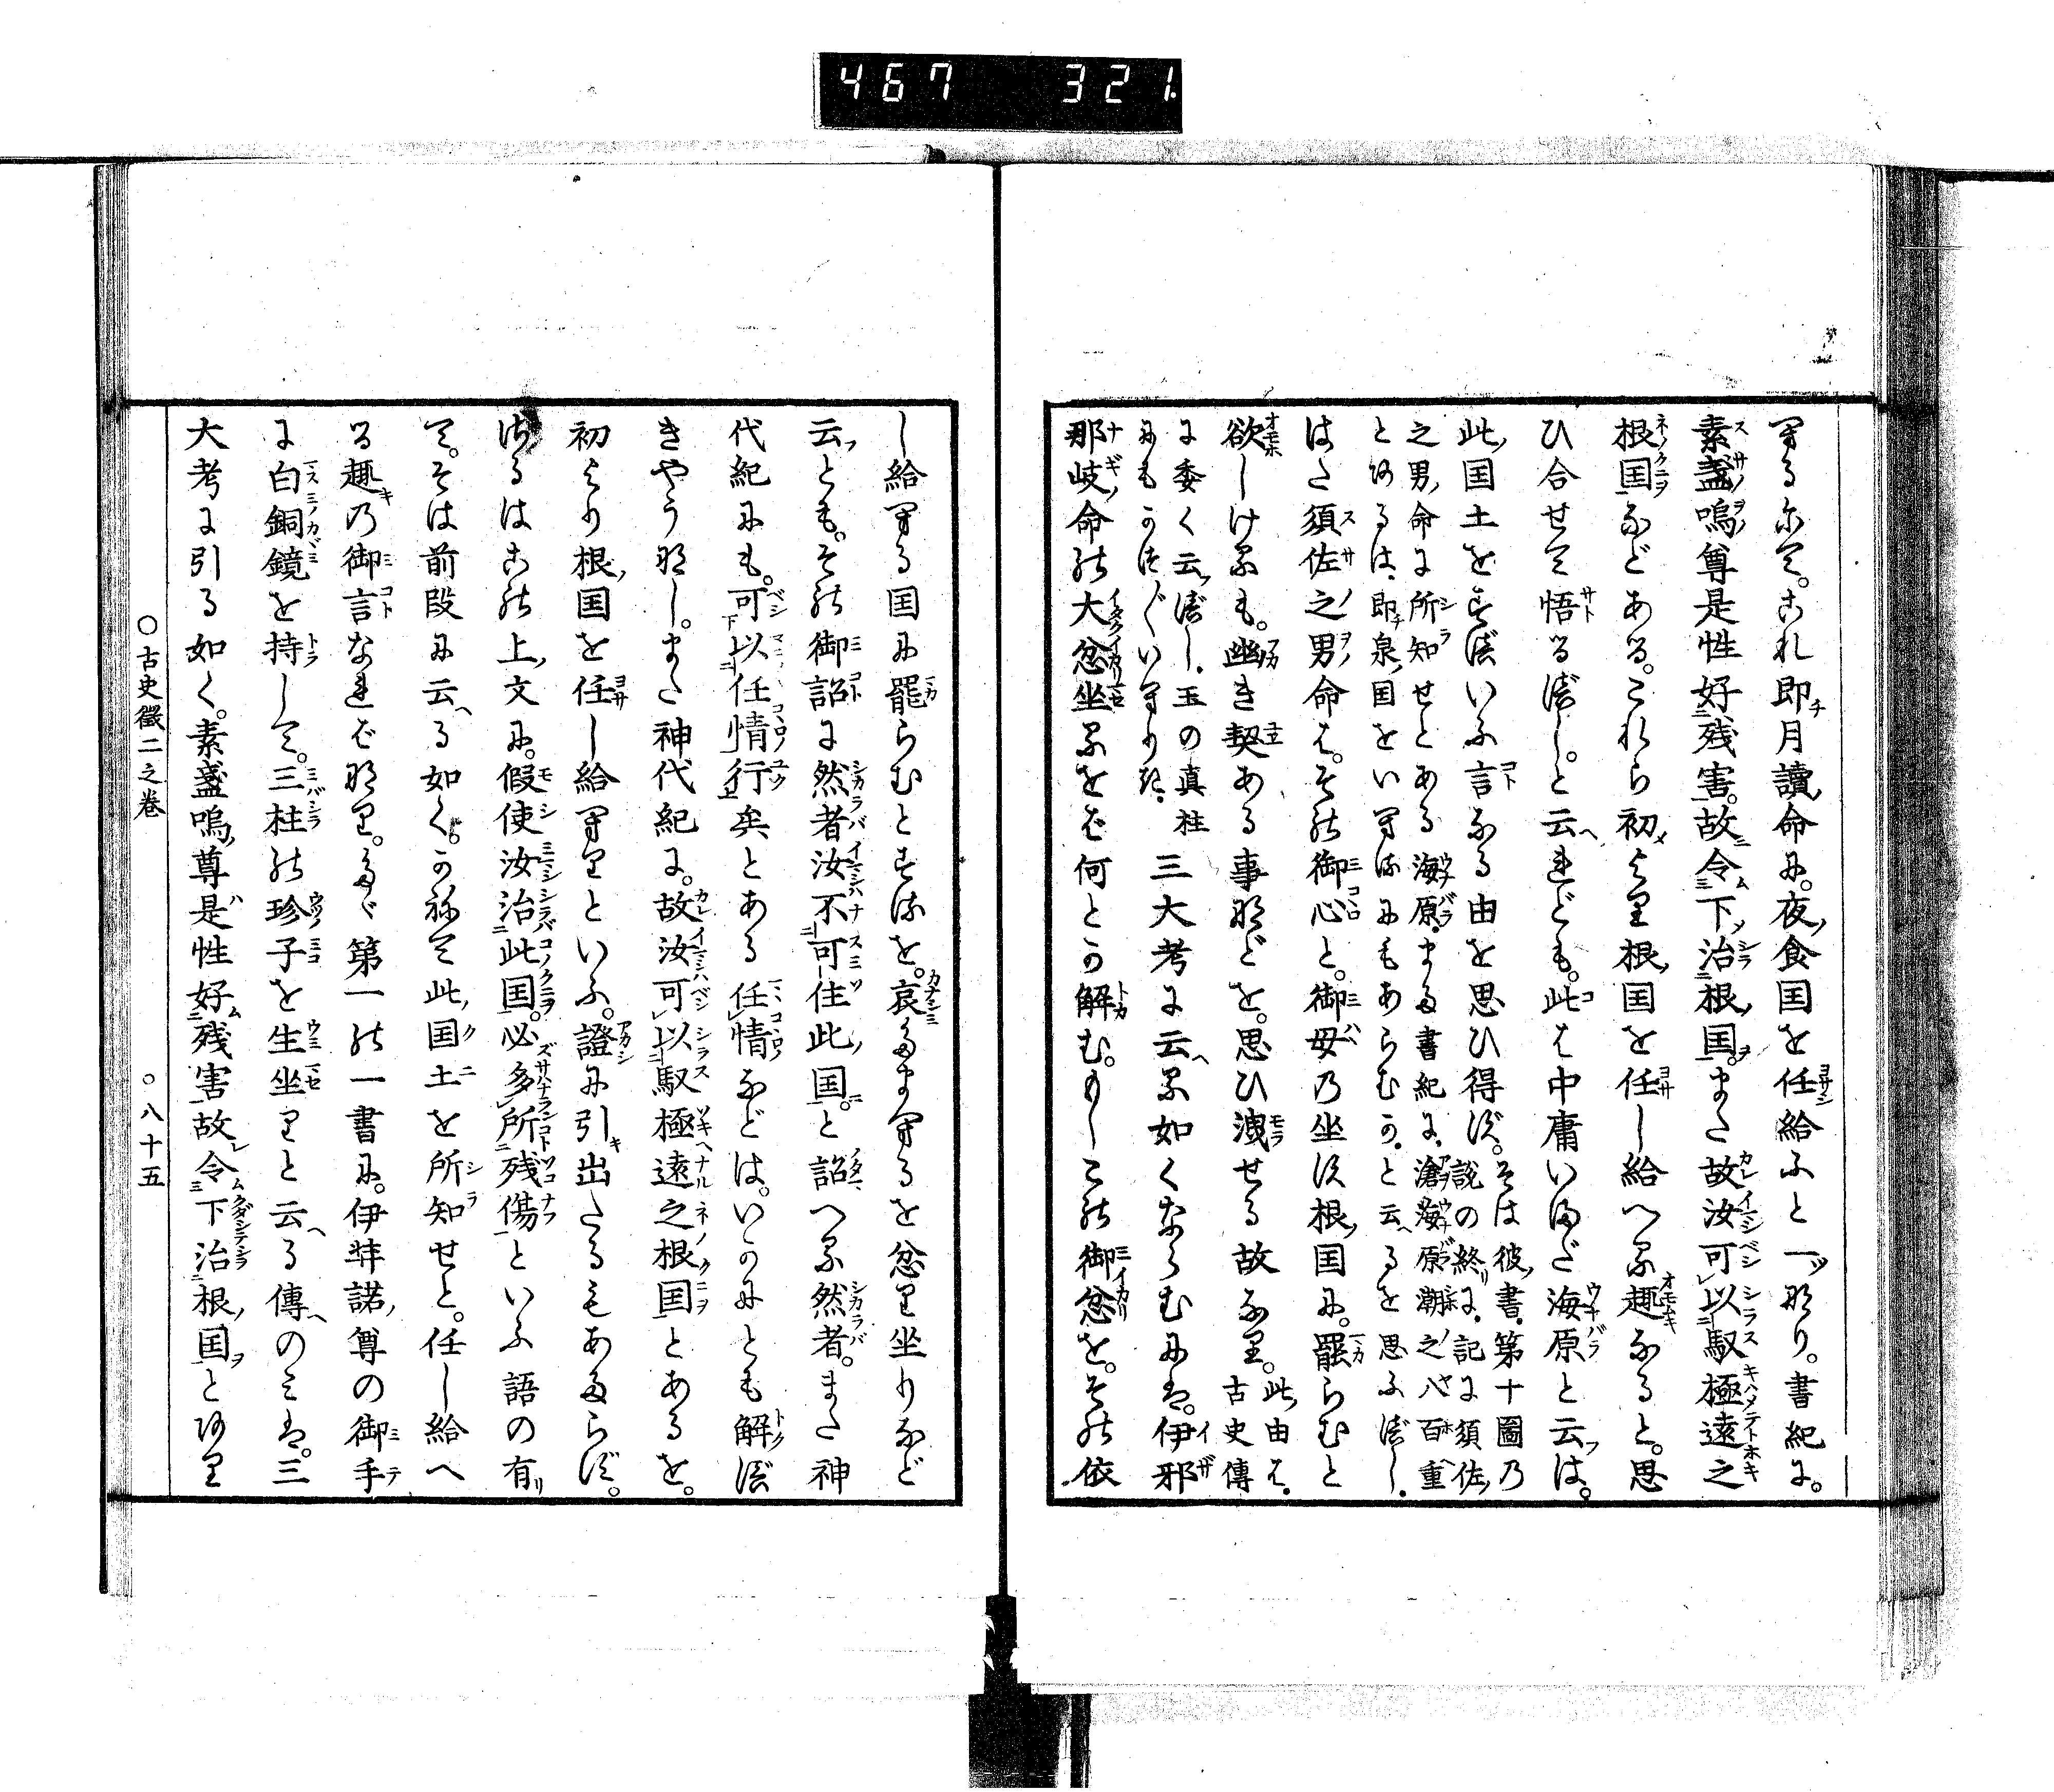 467 321.
る尓て。これ即月讀命に。夜食国を任給ふと一なり。書紀に。
素盞嗚尊是性好残害。故令下治根国。また故汝可以馭極遠之
根国などある。これら初より根国を任し給へる趣なると。思
ひ合せて悟るべし。と云れども。此は中庸いまだ海原と云は。
此国土をすべいふ言なる由を思ひ得ず。そは彼書第十圖乃
説の終に。記に須佐
之男命に所知せとある海原。また書紀に。滄海原潮之八百重
とあるは、即泉国をいへるにもあらむか。と云るを思ふべし。
はた須佐之男命は。その御心と。御母乃坐す根国に。罷らむと
欲しけるも。幽き契ある事などを。思ひ洩せる故なり。此由は。古史傳
に委く云べし。玉の真柱
にもかつ〴〵いへりき。
三大考に云る如くならむには。伊邪
那岐命の大忿坐るをば何とか解む。もしこの御忿を。その依
し給へる国に罷らむとするを。哀たまへるを忿り坐りなど
云とも。その御詔に然者汝不可住此国。と詔へる然者。また神
代紀にも。可以任情行矣とある任情などは。いかにとも解べ
きやうなし。また神代紀に。故汝可以馭極遠之根国とあるを。
初より根国を任し給へりといふ。證に引出たるもあたらず。
はこの上文に。假使汝治此国。必多所残傷といふ語の有
て。そは前段に云る如く。かねて此国土を所知せと。任し給へ
る趣乃御言なればなり。たゞ第一の一書に。伊弉諾尊の御手
に白銅鏡を持して。三柱の珍子を生坐りと云る傳のみは。三
大考に引る如く。素盞嗚尊是性好残害故令下治根国とあり
○古史徴二之巻
○八十五